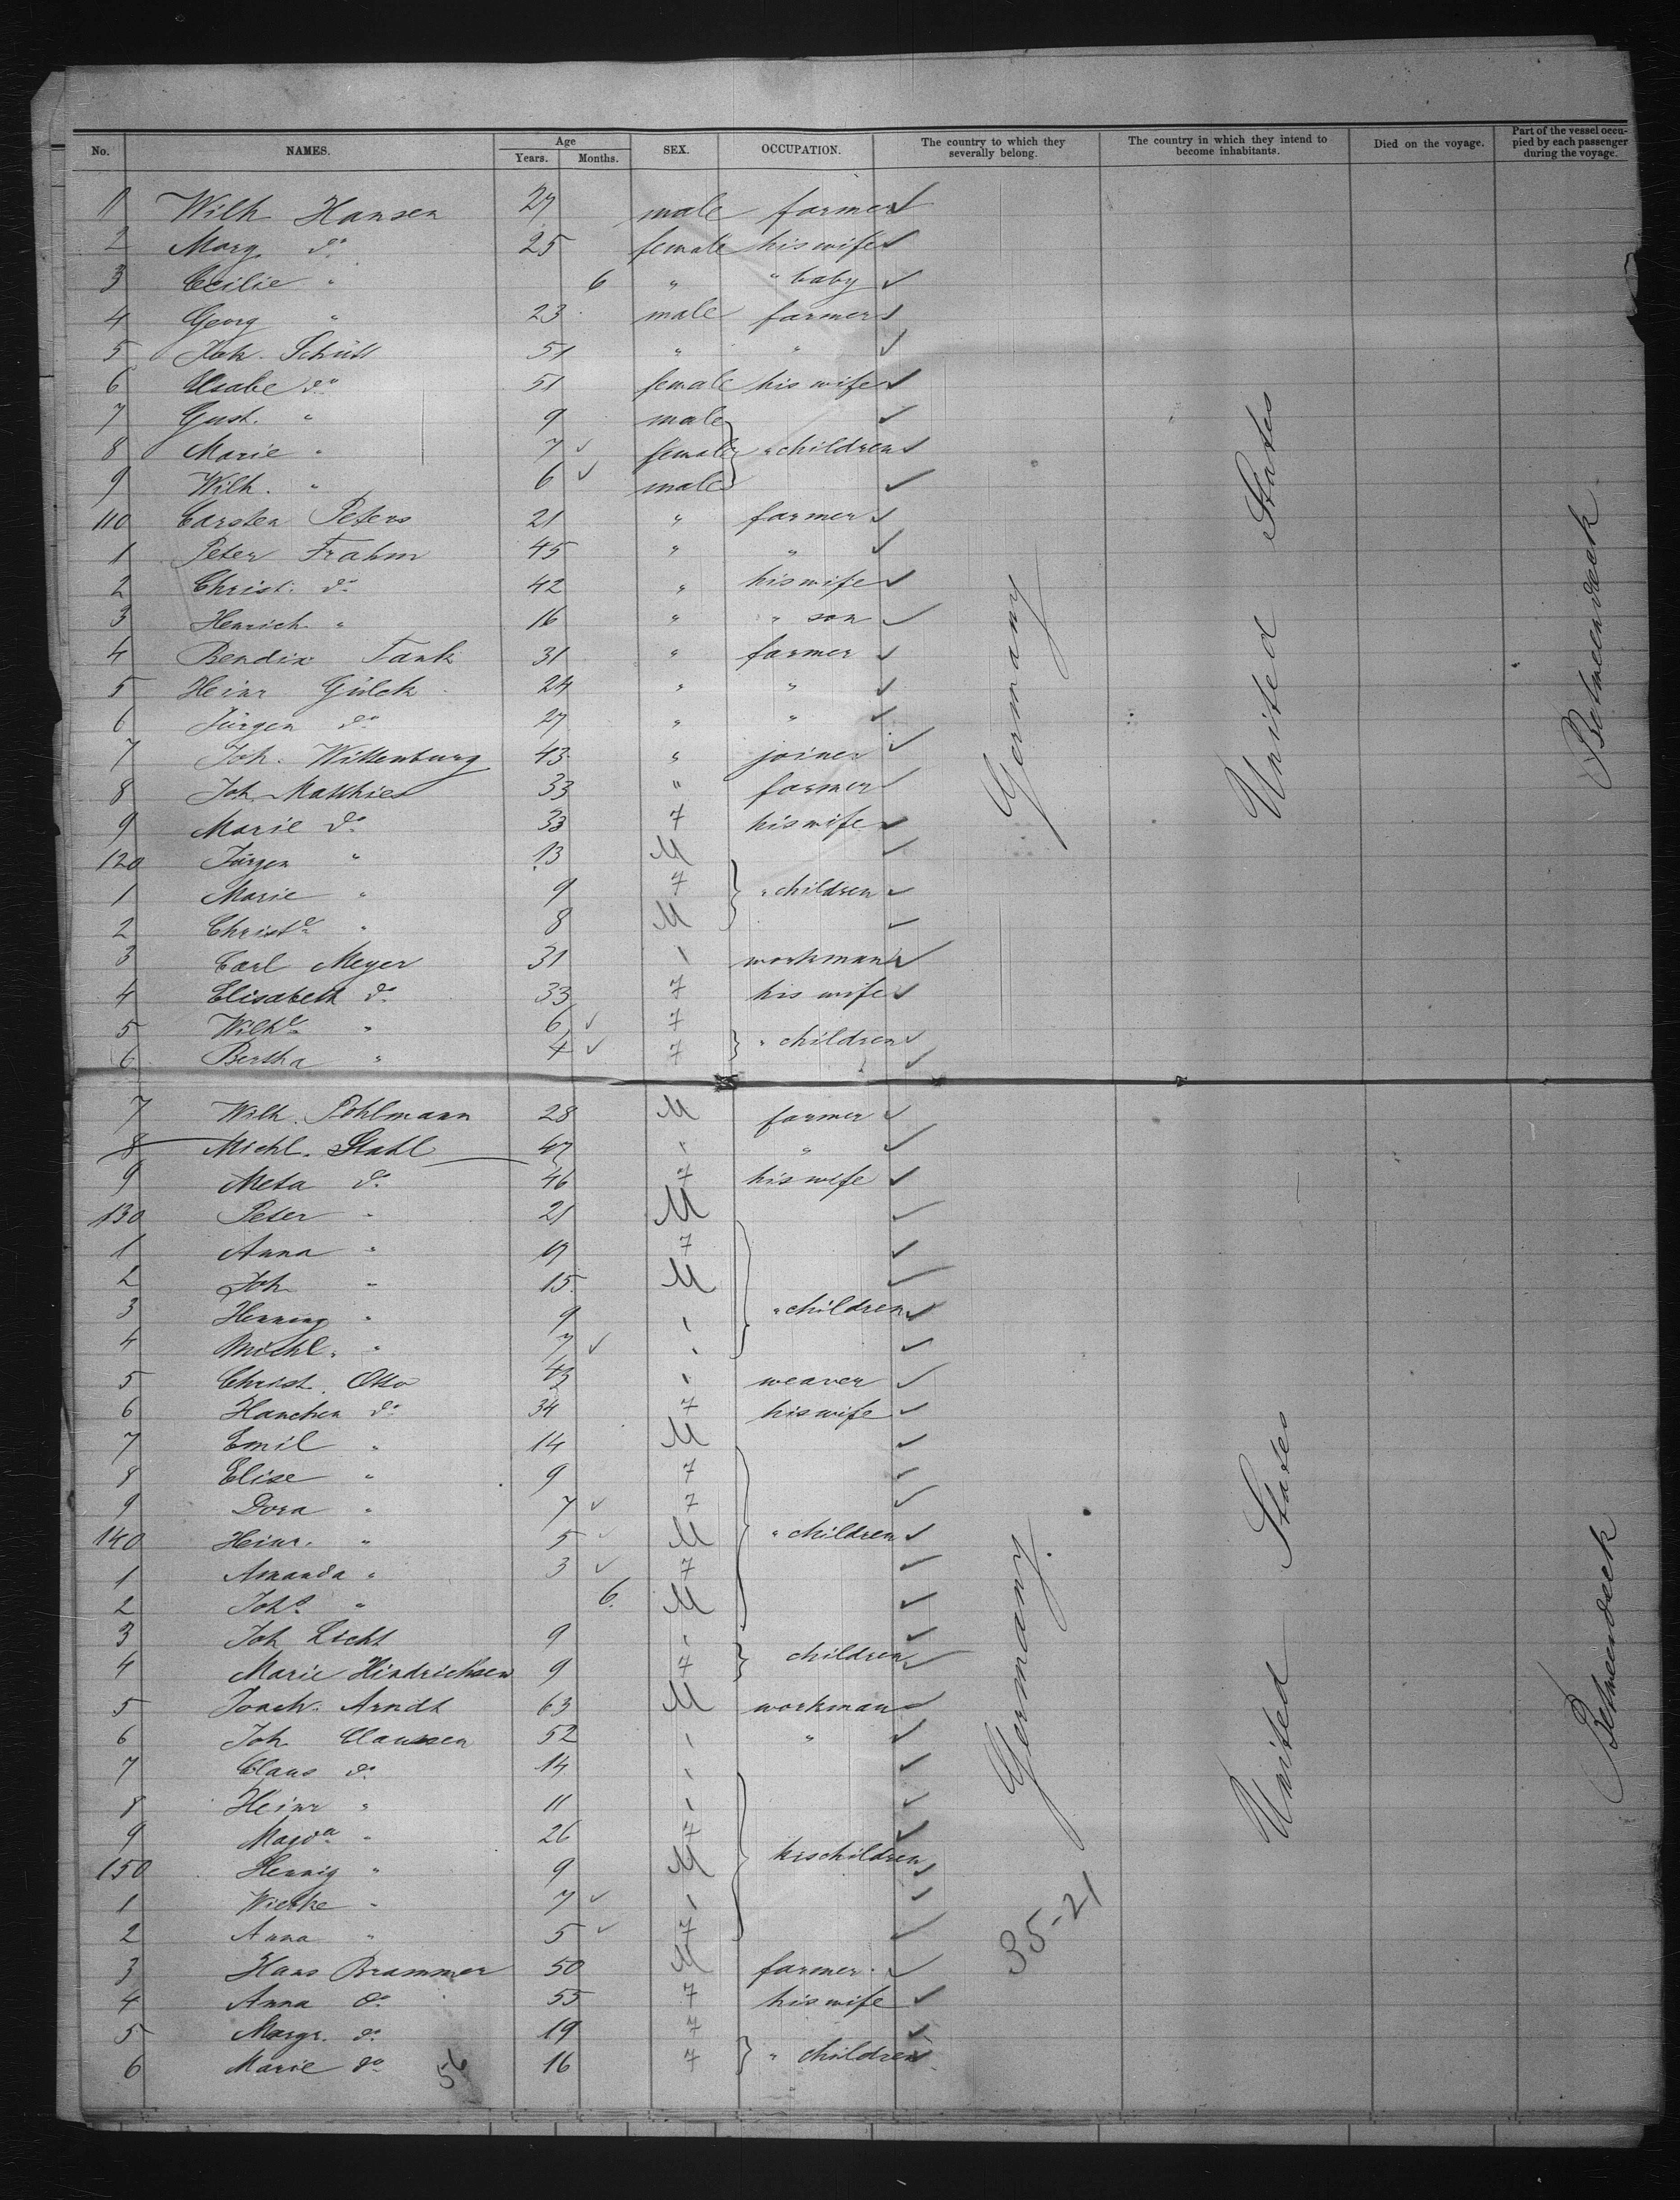 No. NAMES. Age Years. Months. SEX. OCCUPATION. The country to which they severally belong. The country in which they intend to become inhabitants. Died on the voyage. Part of the vessel occupied by each passenger during the voyage.
1 Wilh Hansen 27 male farmer
2 Marg. do 25 female his wife
3 Cecilie " 6 " " baby
4 Georg " 23 male farmer
5 Joh. Schütt 51 " "
6 Wiabe do 51 female his wife
7 Gust. " 9 male
8 Marie " 7 female " children
9 Wilh. " 6 male
110 Carsten Peters 21 " farmer
1 Peter Frahm 45 " "
2 Christ. do 42 " his wife
3 Henrich " 16 " " son
4 Bendix Tank 31 " farmer
5 Heinr Gülck 24 " "
6 Jürgen do 27 " "
7 Joh. Wittenburg 43 " joiner
8 Joh. Matthies 33 " farmer
9 Marie do 33 F his wife
120 Jürgen " 13 M
1 Marie " 9 F " children
2 Christe " 8 M
3 Carl Meyer 31 " workman
4 Elisabeth do 33 F his wife
5 Wilhe " 6 F " children
6 Bertha " 4 F
7 Wilh. Pohlmann 28 M farmer
8 Michl. Stahl 47 " "
9 Meta do 46 F his wife
130 Peter " 21 M
1 Anna " 19 F
2 Joh " 15 M
3 Henning " 9 " " children
4 Michl. " 7 "
5 Christ. Otto 43 " weaver
6 Hanchen do 34 F his wife
7 Emil " 14 M
8 Elise " 9 F
9 Dora " 7 F
140 Heinr. " 5 M " children
1 Amanda " 3 F
2 Johs " 6. M
3 Joh Licht 9 "
4 Marie Hindrichsen 9 F children
5 Joach. Arndt 63 M workman
6 Joh Claussen 52 " "
7 Claus do 14 "
8 Heinr " 11 "
9 Magda " 26 F
150 Hennig " 9 M his children
1 Wiebke " 7 "
2 Anna " 5 F
3 Hans Brammer 50 M farmer
4 Anna do 55 F his wife
5 Margr. do 19 F
6 Marie do 16 F " children
56
Germany
United States
Betweendeck
Germany.
United States
Betweendeck
35-21